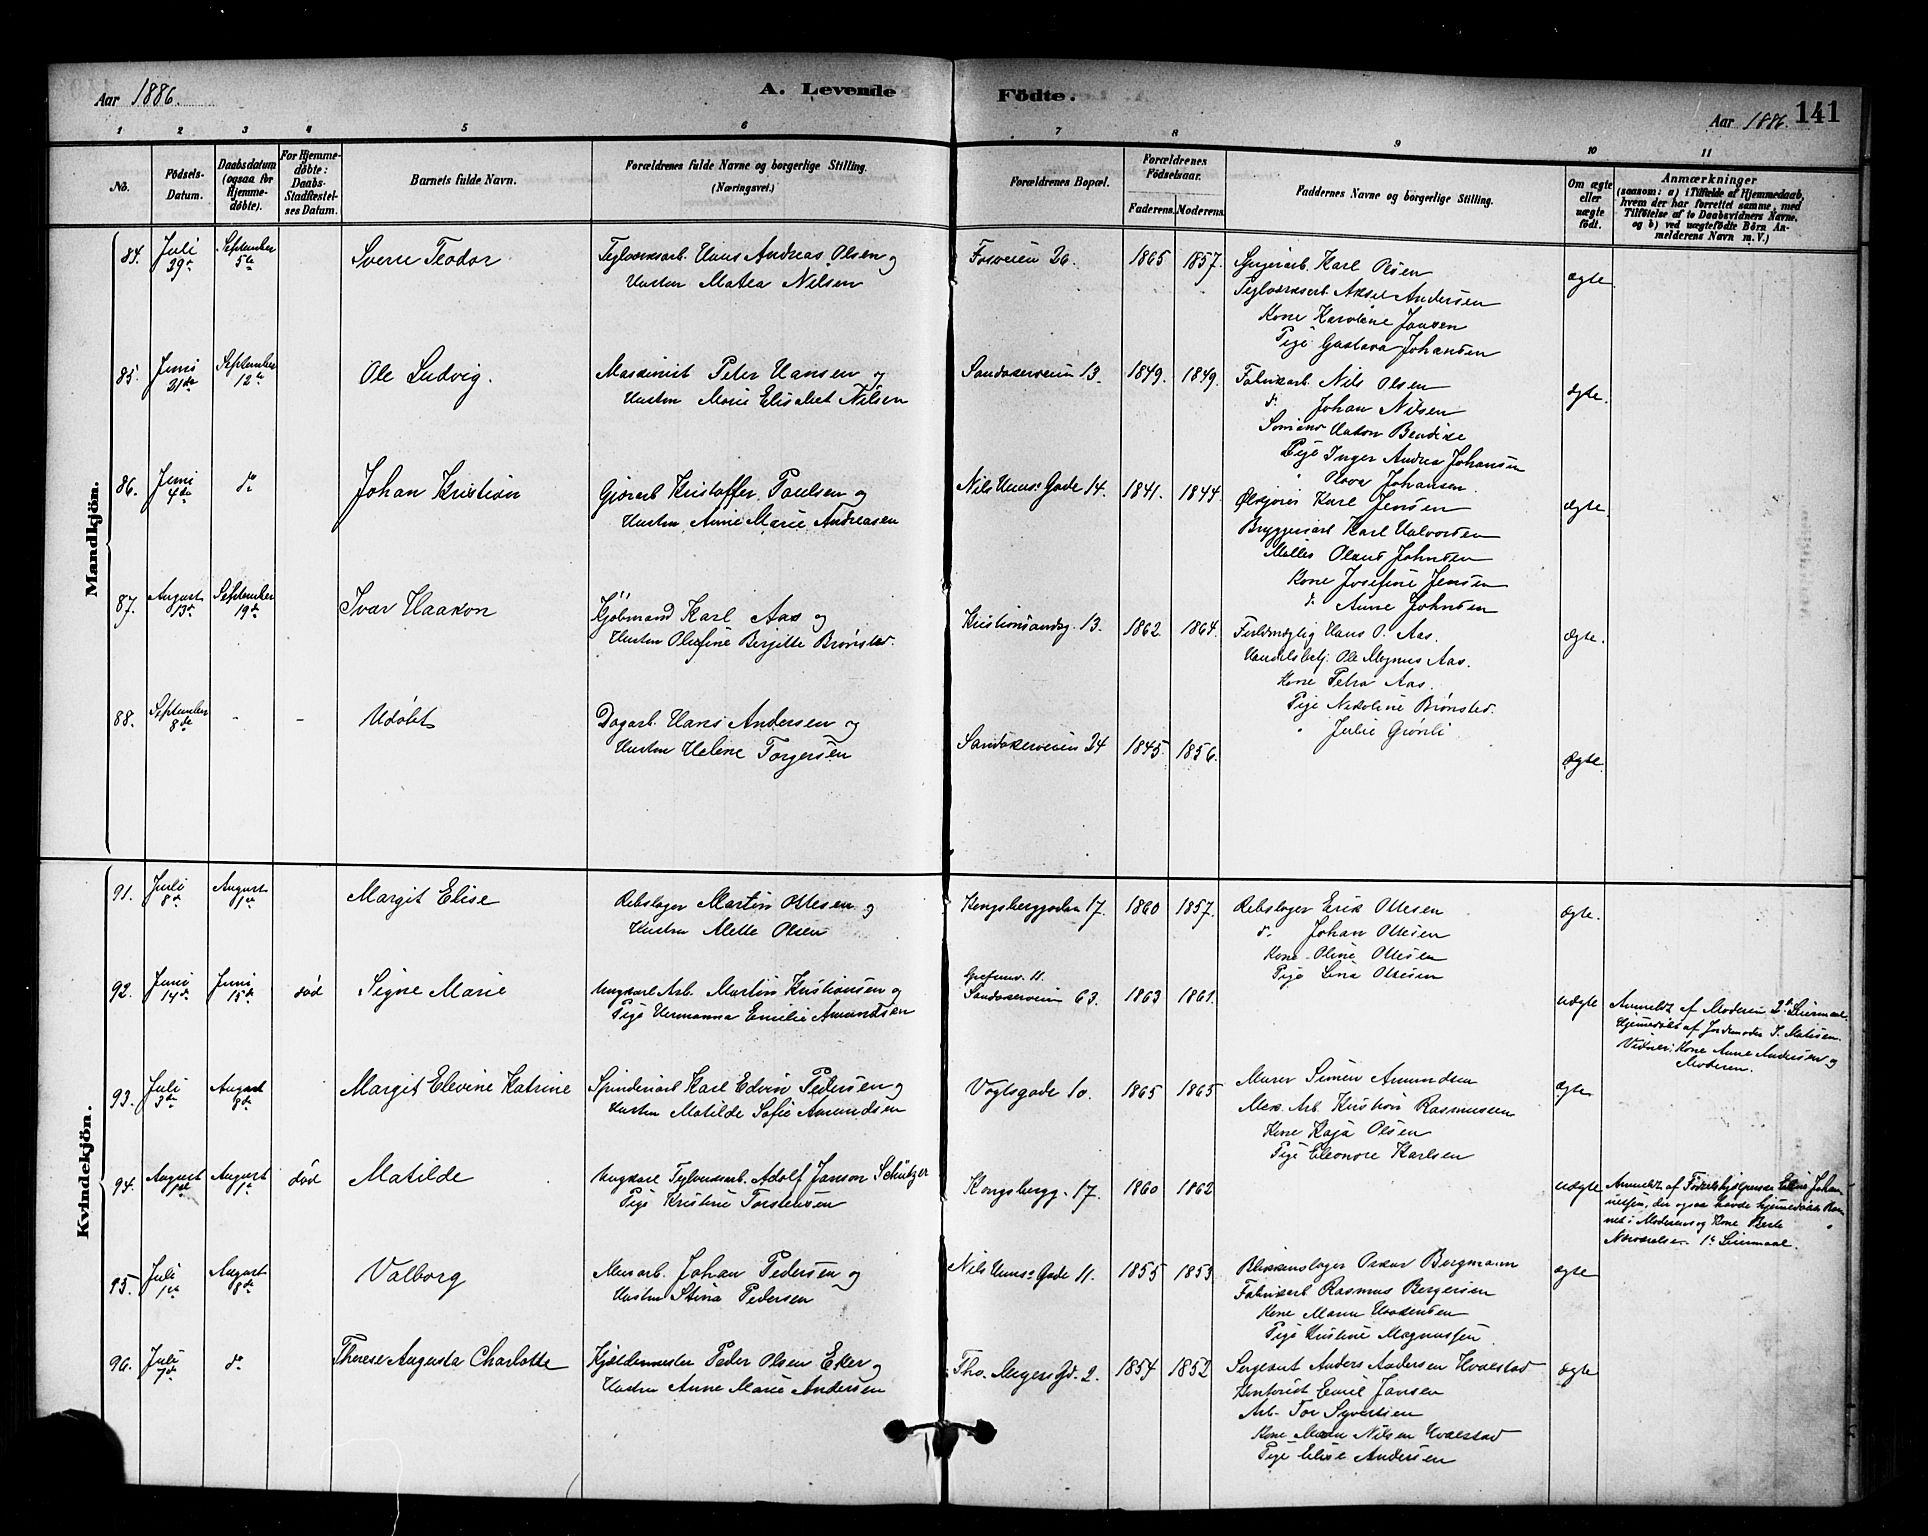 Aar 1886.
A. Levende Födte.
Aar 1886. 141
1 2 3 4 5 6 7 8 9 10 11
No.
Födsels-Datum.
Daabsdatum (ogsaa for Hjemme-döbte).
For Hjemme-döbte: Daabs-Stadfæstel-ses Datum.
Barnets fulde Navn.
Forældrenes fulde Navne og borgerlige Stilling. (Næringsvei.)
Forældrenes Bopæl.
Forældrenes Födselsaar.
Faderens. Moderens.
Faddernes Navne og borgerlige Stilling.
Om ægte eller uægte födt.
Anmærkninger
(saasom: a) i Tilfælde af Hjemmedaab, hvem der har forrettet samme, med Tilföielse af to Daabsvidners Navne, og b) ved uægtefödte Börn An-melderens Navn m. V.)
Mandkjön.
84. Juli 29de September 5te Sverre Teodor Teglværksarb. Hans Andreas Olsen og Fosveien 26. 1865 1857. Karl Olsen ægte
Hustru Matea Nilsen Teglværksarb. Aksel Andersen
Kone Karoline Jansen
Pige Gustava Johansen
85. Juni 21de September 12te Ole Ludvig. Maskinist Peter Hansen og Sandakerveien 13. 1849. 1849. Fabrikarb. Nils Olsen ægte.
Hustru Marie Elisabet Nilsen do Johan Nilsen
Hakon Bendixe
Pige Inger Andrea Johansen
" Johansen
86. Juni 4de do Johan Kristian Kristoffer Paulsen og Nils Huus' Gade 14. 1841. 1844. Ølkjører Karl Jensen ægte
Hustru Anne Marie Andreasen Bryggeriarb Karl Halvorsen
Møller Olaus Johnsen
Kone Josefine Jensen
do Anne Johnsen
87. August 13de September 19de Ivar Haakon Kjøbmand Karl Aas og Kristiansandsg. 13. 1862. 1864. Fuldmægtig Hans O. Aas. ægte.
Hustru Olefine Berjitte Brønsted. Handelsbetj. Ole Magnus Aas.
Kone Petra Aas.
Pige Nikoline Brønsted.
" Julie Grønli
88. September 8de - - Udøbt Dagarb. Hans Andersen og Sandakerveien 24 1845. 1856. ægte.
Hustru Helene Torgersen
Kvindekjön.
91. Juli 8de August 1ste Margit Elise Rebslager Martin Ottesen og Kongsberggaden 17. 1860 1857. Rebslager Erik Ottesen ægte.
Hustru Mette Olsen do Johan Ottesen
Kone Oline Ottesen
Pige Lina Ottesen
92. Juni 14de Juni 15de død Signe Marie Ungkarl Arb. Martin Kristiansen og Grefsenv. 11. Sandakerveien 63. 1863 1861. uægte Anmeldt af Moderen 2det Leiermaal.
Pige Hermanna Emilie Amundsen Hjemmedøbt af Jordemoder J. Matisen.
Vidner: Kone Anne Andersen og
Moderen.
93. Juli 3die August 8de Margit Elevine Katrine Spinderiarb Karl Edvin Pedersen og Vogtsgade 10. 1865 1865 Murer Simen Amundsen ægte
Hustru Matilde Sofie Amundsen Mek. Arb. Kristian Rasmussen
Kone Kaja Olsen
Pige Eleonore Karlsen
94. August 1ste August 1ste død Matilde Ungkarl Teglværksarb. Adolf Janson Schützer Kongsbergg. 17. 1860 1862 uægte Anmeldt af Fødselshjælpersken Johan-
Pige Kristine Torstensen nessen, der ogsaa havde hjemmedøbt Bar-
net i Moderens og Kone Berte
Nærværelse. 1ste Leiermaal.
95. Juli 1ste August 8de Valborg Murarb. Johan Pedersen og Nils Huus' Gade 11. 1855 1853 Blikkenslager Oskar Bergmann ægte
Hustru Stina Pedersen Fabrikarb Rasmus Bergersen
Kone Maren Haakensen
Pige Kristine Magnussen
96. Juli 7de do Therese Augusta Charlotte Kjældermester Peder Olsen Eker og Tho. Meyers Gd. 2. 1854 1852 Sergeant Anders Andersen Hvalstad ægte
Hustru Anne Marie Andersen Kontorist Emil Jansen
Arb. Tor Syvertsen
Kone Nilsen Hvalstad
Pige Elise Andersen